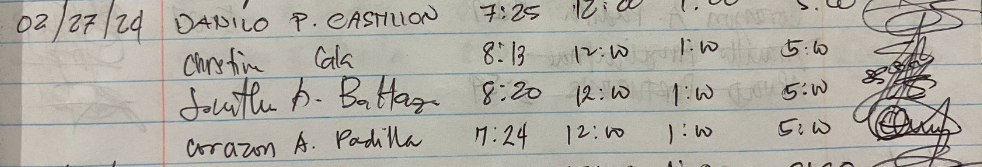 02/27/24 DANILO P. CASTILLON 7:25 12:00 1:00 5:00
Christin Cala 8:13 12:00 1:00 5:00
D. Battag 8:20 12:00 1:00 5:00
Corazon A. Padilla 7:24 12:00 1:00 5:00